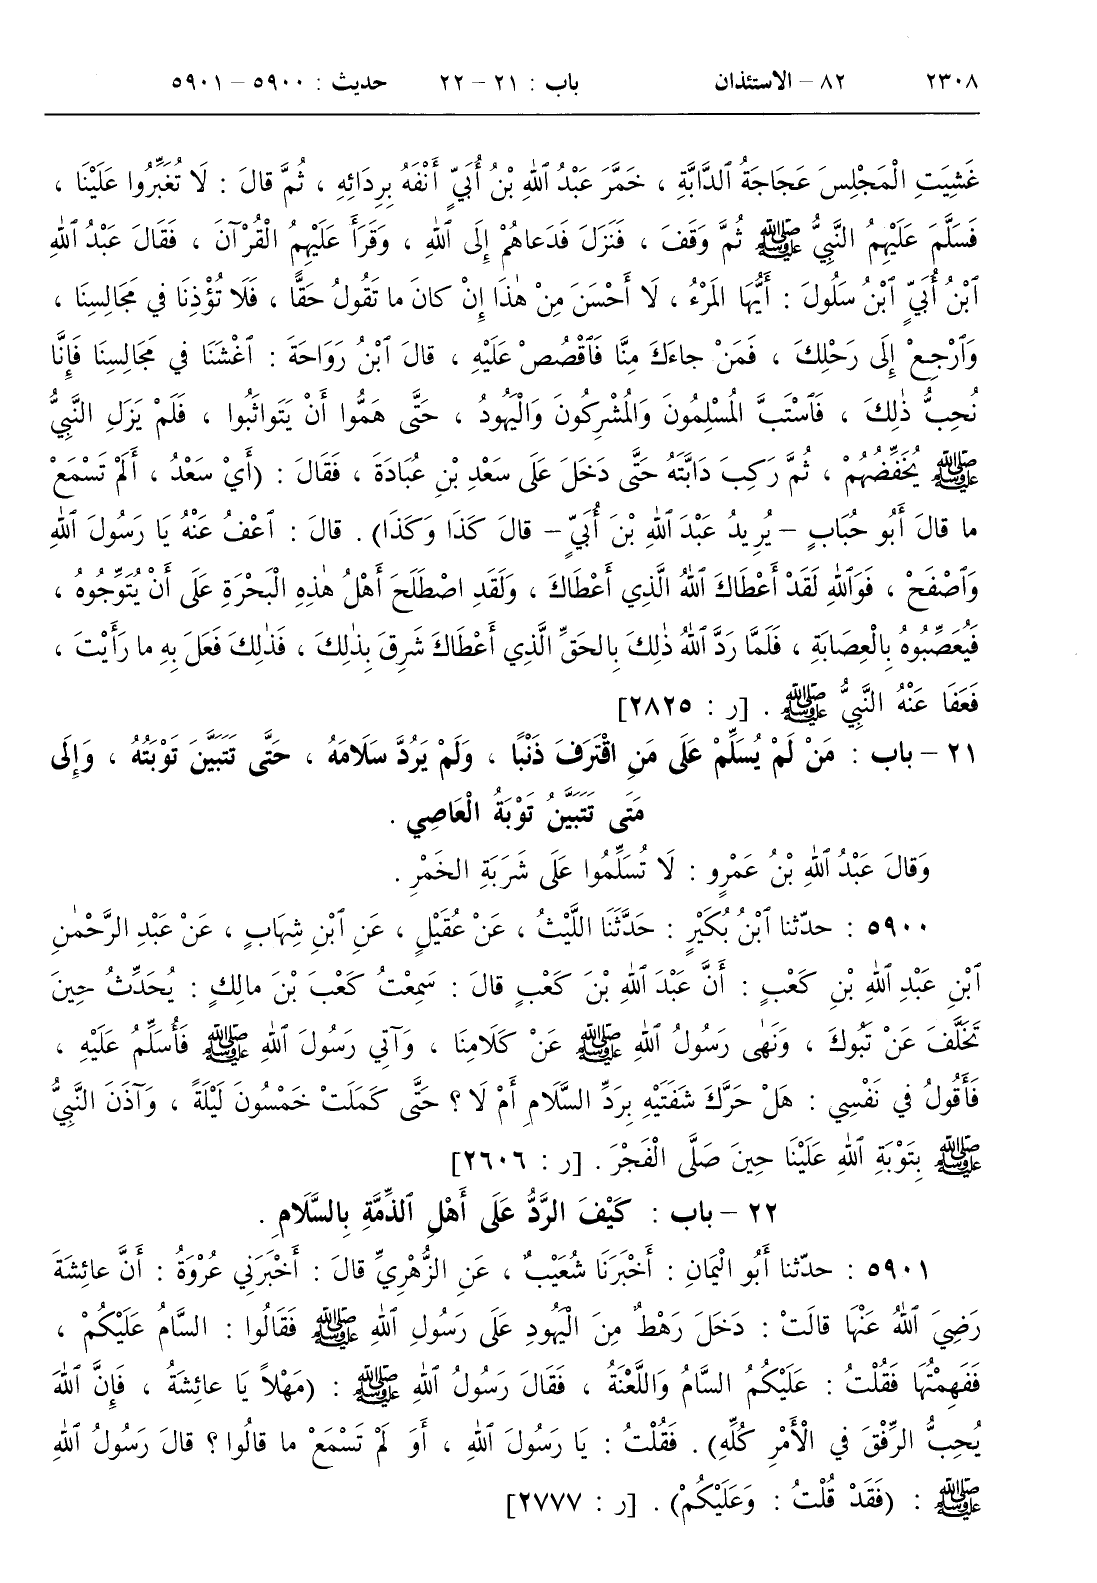 ٢٣٠٨ ٨٢ – الاستئذان باب : ٢١ – ٢٢ حديث : ٥٩٠٠ – ٥٩٠١
غَشِيَتِ الْمَجْلِسَ عَجَاجَةُ ٱلدَّابَّةِ ، خَمَّرَ عَبْدُ ٱللهِ بْنُ أُبَيٍّ أَنْفَهُ بِرِدَائِهِ ، ثُمَّ قالَ : لَا تُغَبِّرُوا عَلَيْنَا ،
فَسَلَّمَ عَلَيْهِمُ النَّبِيُّ ﷺ ثُمَّ وَقَفَ ، فَنَزَلَ فَدَعاهُمْ إِلَى ٱللهِ ، وَقَرَأَ عَلَيْهِمُ الْقُرْآنَ ، فَقَالَ عَبْدُ ٱللهِ
ٱبْنُ أُبَيٍّ ٱبْنُ سَلُولَ : أَيُّهَا المَرْءُ ، لَا أَحْسَنَ مِنْ هٰذَا إِنْ كانَ ما تَقُولُ حَقًّا ، فَلَا تُؤْذِنَا في مَجَالِسِنَا ،
وَٱرْجِعْ إِلَى رَحْلِكَ ، فَمَنْ جاءَكَ مِنَّا فَٱقْصُصْ عَلَيْهِ ، قالَ ٱبْنُ رَوَاحَةَ : ٱغْشَنَا في مَجَالِسِنَا فَإِنَّا
نُحِبُّ ذٰلِكَ ، فَٱسْتَبَّ المُسْلِمُونَ وَالمُشْرِكُونَ وَالْيَهُودُ ، حَتَّى هَمُّوا أَنْ يَتَوَاثَبُوا ، فَلَمْ يَزَلِ النَّبِيُّ
ﷺ يُخَفِّضُهُمْ ، ثُمَّ رَكِبَ دَابَّتَهُ حَتَّى دَخَلَ عَلَى سَعْدِ بْنِ عُبَادَةَ ، فَقَالَ : (أَيْ سَعْدُ ، أَلَمْ تَسْمَعْ
ما قالَ أَبُو حُبَابٍ – يُرِيدُ عَبْدَ ٱللهِ بْنَ أُبَيٍّ – قالَ كَذَا وَكَذَا) . قالَ : ٱعْفُ عَنْهُ يَا رَسُولَ ٱللهِ
وَٱصْفَحْ ، فَوَٱللهِ لَقَدْ أَعْطَاكَ ٱللهُ الَّذِي أَعْطَاكَ ، وَلَقَدِ اصْطَلَحَ أَهْلُ هٰذِهِ الْبَحْرَةِ عَلَى أَنْ يُتَوِّجُوهُ ،
فَيُعَصِّبُوهُ بِالْعِصَابَةِ ، فَلَمَّا رَدَّ ٱللهُ ذٰلِكَ بِالحَقِّ الَّذِي أَعْطَاكَ شَرِقَ بِذٰلِكَ ، فَذٰلِكَ فَعَلَ بِهِ ما رَأَيْتَ ،
فَعَفَا عَنْهُ النَّبِيُّ ﷺ . [ر : ٢٨٢٥]
٢١ – باب : مَنْ لَمْ يُسَلِّمْ عَلَى مَنِ اقْتَرَفَ ذَنْبًا ، وَلَمْ يَرُدَّ سَلَامَهُ ، حَتَّى تَتَبَيَّنَ تَوْبَتُهُ ، وَإِلَى
مَتَى تَتَبَيَّنُ تَوْبَةُ الْعَاصِي .
وَقالَ عَبْدُ ٱللهِ بْنُ عَمْرٍو : لَا تُسَلِّمُوا عَلَى شَرَبَةِ الخَمْرِ .
٥٩٠٠ : حدّثنا ٱبْنُ بُكَيْرٍ : حَدَّثَنَا اللَّيْثُ ، عَنْ عُقَيْلٍ ، عَنِ ٱبْنِ شِهَابٍ ، عَنْ عَبْدِ الرَّحْمٰنِ
ٱبْنِ عَبْدِ ٱللهِ بْنِ كَعْبٍ : أَنَّ عَبْدَ ٱللهِ بْنَ كَعْبٍ قالَ : سَمِعْتُ كَعْبَ بْنَ مالِكٍ : يُحَدِّثُ حِينَ
تَخَلَّفَ عَنْ تَبُوكَ ، وَنَهٰى رَسُولُ ٱللهِ ﷺ عَنْ كَلَامِنَا ، وَآتِي رَسُولَ ٱللهِ ﷺ فَأُسَلِّمُ عَلَيْهِ ،
فَأَقُولُ في نَفْسِي : هَلْ حَرَّكَ شَفَتَيْهِ بِرَدِّ السَّلَامِ أَمْ لَا ؟ حَتَّى كَمَلَتْ خَمْسُونَ لَيْلَةً ، وَآذَنَ النَّبِيُّ
ﷺ بِتَوْبَةِ ٱللهِ عَلَيْنَا حِينَ صَلَّى الْفَجْرَ . [ر : ٢٦٠٦]
٢٢ – باب : كَيْفَ الرَّدُّ عَلَى أَهْلِ ٱلذِّمَّةِ بِالسَّلَامِ .
٥٩٠١ : حدّثنا أَبُو الْيَمَانِ : أَخْبَرَنَا شُعَيْبٌ ، عَنِ الزُّهْرِيِّ قالَ : أَخْبَرَنِي عُرْوَةُ : أَنَّ عائِشَةَ
رَضِيَ ٱللهُ عَنْهَا قالَتْ : دَخَلَ رَهْطٌ مِنَ الْيَهُودِ عَلَى رَسُولِ ٱللهِ ﷺ فَقَالُوا : السَّامُ عَلَيْكُمْ ،
فَفَهِمْتُهَا فَقُلْتُ : عَلَيْكُمُ السَّامُ وَاللَّعْنَةُ ، فَقَالَ رَسُولُ ٱللهِ ﷺ : (مَهْلاً يَا عائِشَةُ ، فَإِنَّ ٱللهَ
يُحِبُّ الرِّفْقَ في الْأَمْرِ كُلِّهِ) . فَقُلْتُ : يَا رَسُولَ ٱللهِ ، أَوَ لَمْ تَسْمَعْ ما قالُوا ؟ قالَ رَسُولُ ٱللهِ
ﷺ : (فَقَدْ قُلْتُ : وَعَلَيْكُمْ) . [ر : ٢٧٧٧]